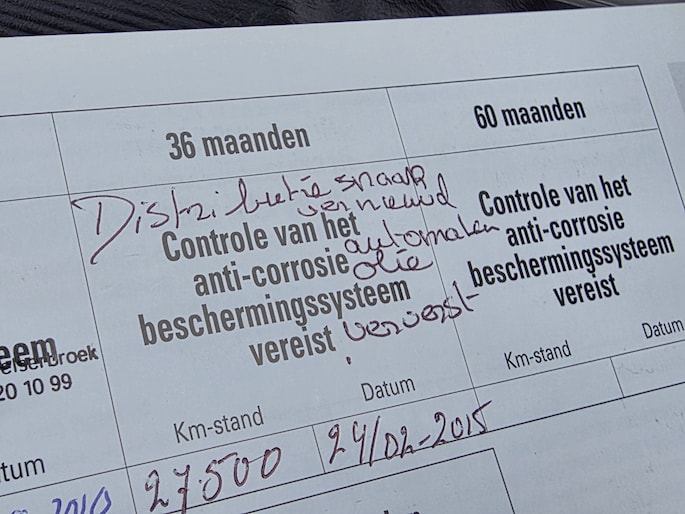 36 maanden
60 maanden
Distributie snaar
vernieuwd
Controle van het
anti-corrosie
beschermingssysteem
vereist
automaten
olie
ververst
Controle van het
anti-corrosie
beschermingssysteem
vereist
eem
eiserbroek
20 10 99
tum
Km-stand
Datum
Km-stand
Datum
2010
27.500
24/02-2015